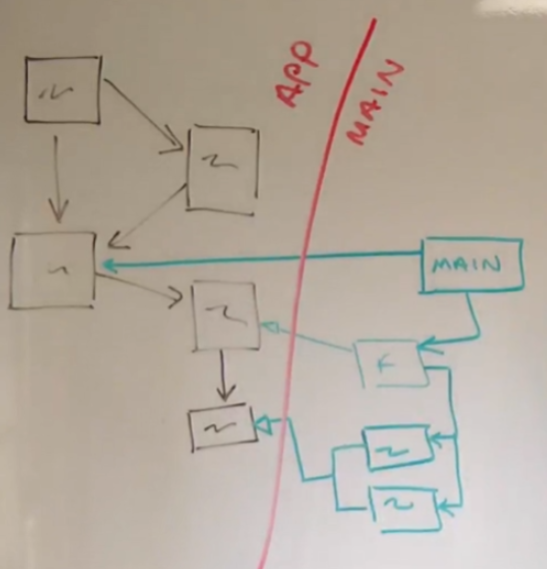 APP
MAIN
MAIN
F